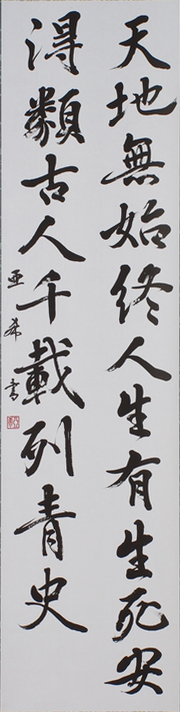 天地無始終人生有生死安
得類古人千載列青史
亜希書